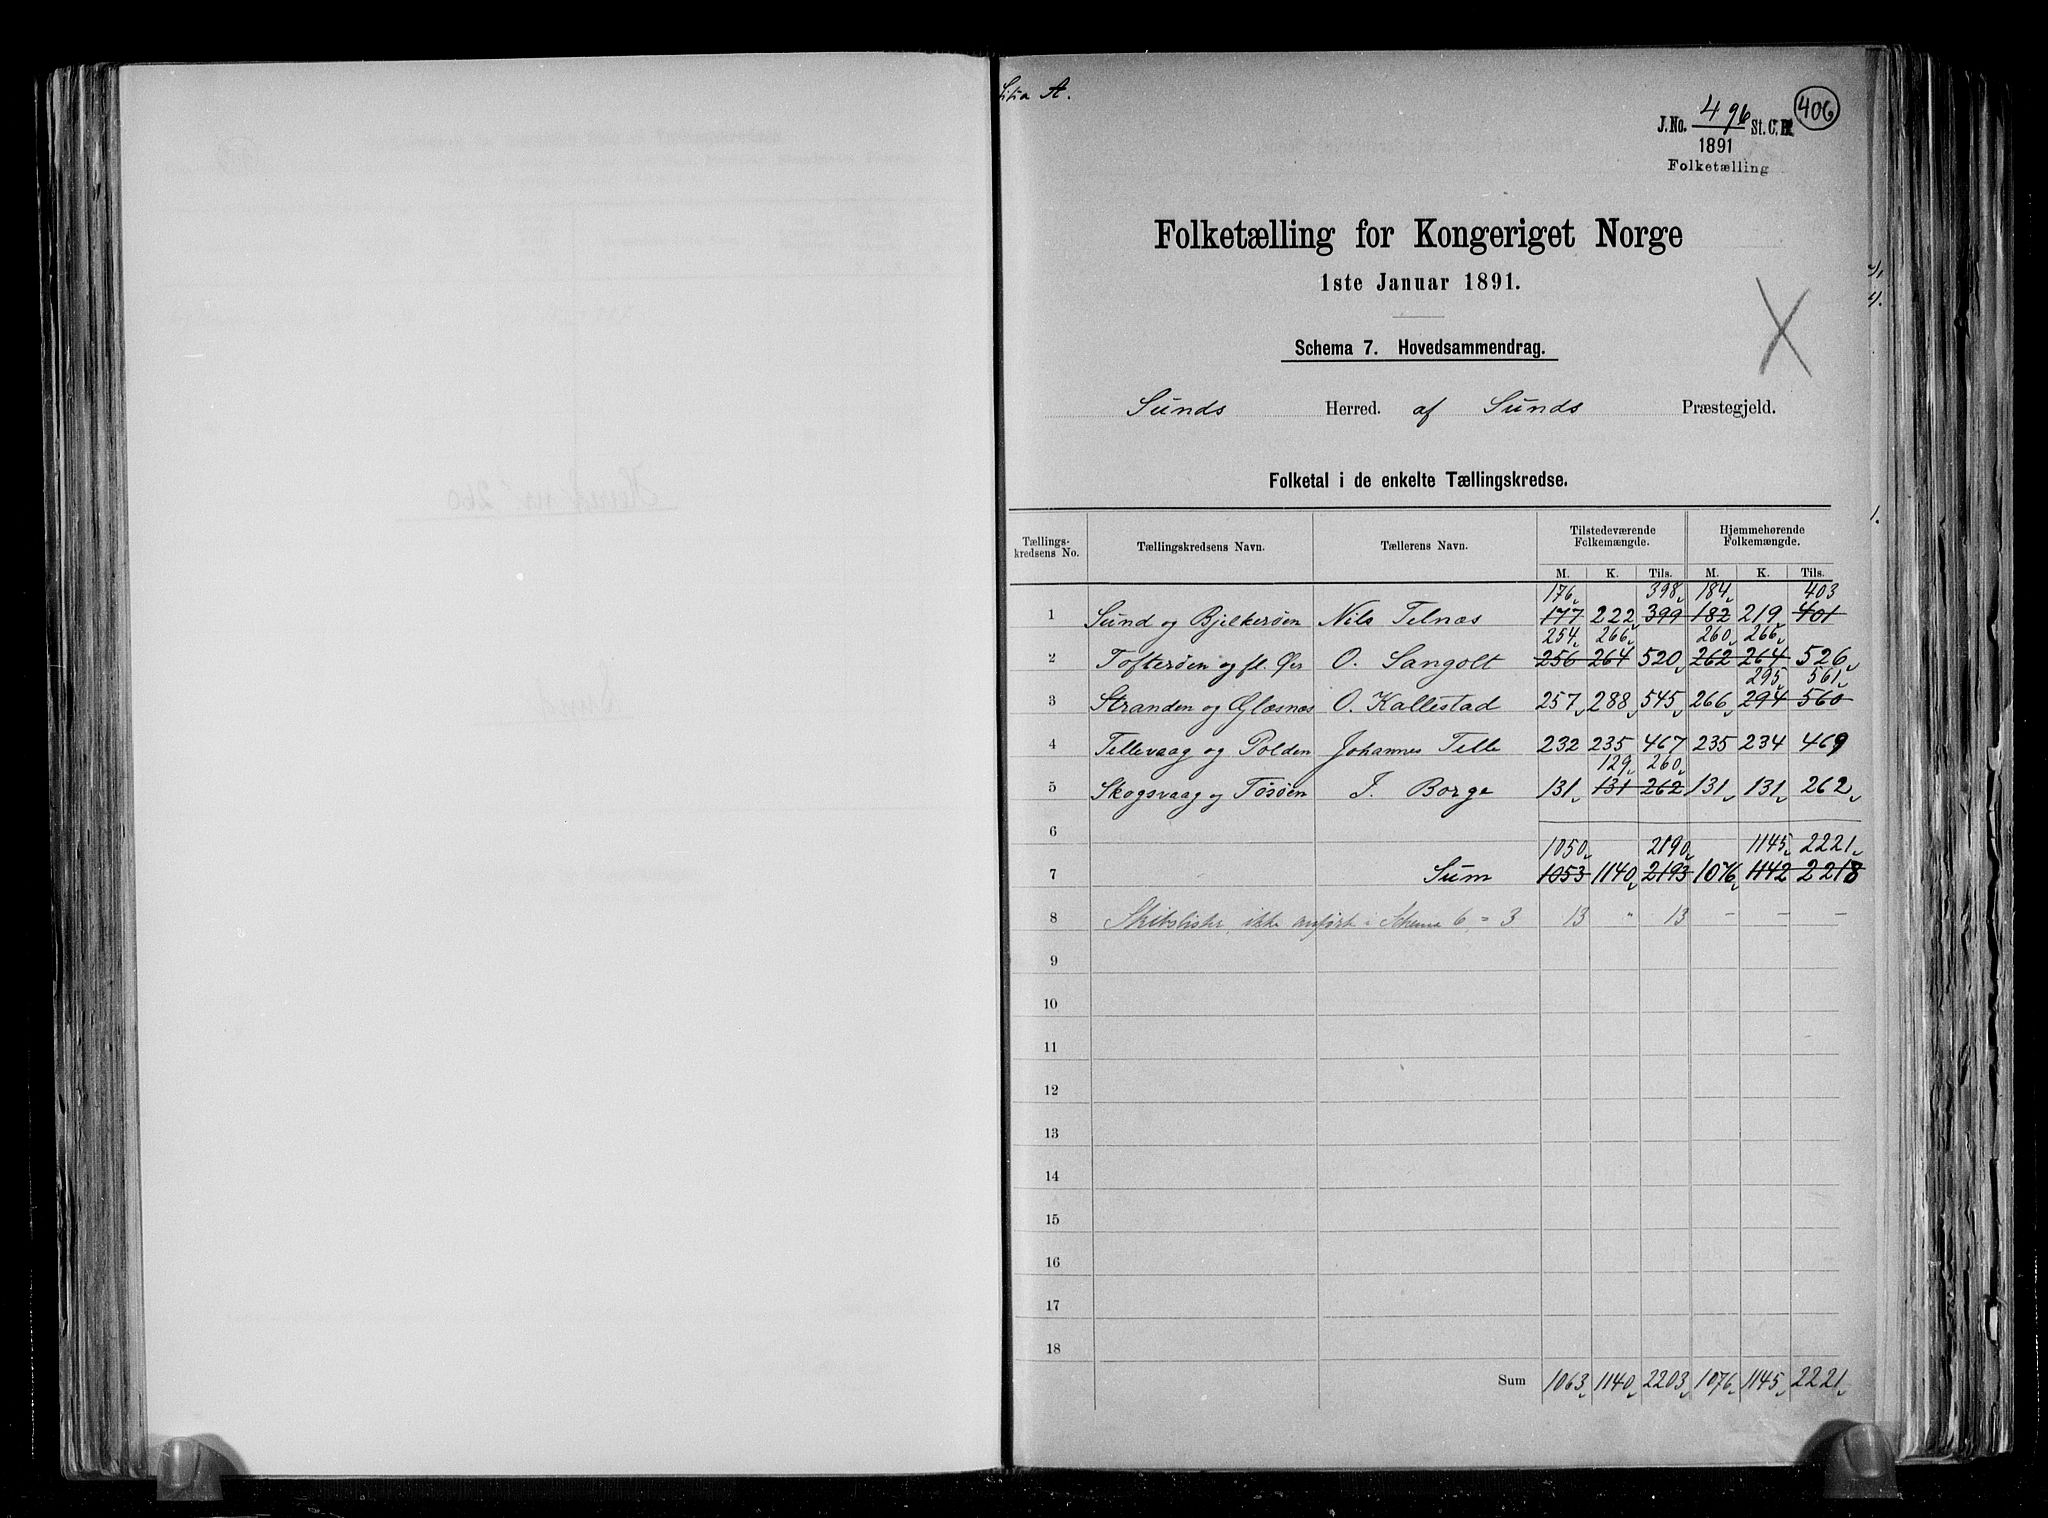 Litia A.
406
J. No. 496 St. C. B.
1891
Folketælling
Folketælling for Kongeriget Norge
1ste Januar 1891.
Schema 7. Hovedsammendrag.
Sunds Herred. af Sunds Præstegjeld.
Folketal i de enkelte Tællingskredse.
Tællings-kredsens No. Tællingskredsens Navn. Tællerens Navn. Tilstedeværende Folkemængde. Hjemmehørende Folkemængde.
M. K. Tils. M. K. Tils.
176 398 184 403
1 Sund og Bjelkerøen Nils Telnæs 177 222 399 182 219 401
254 266 260 266
2 Tofterøen og fl. Øer O. Sangolt 256 264 520 262 264 526
295 561
3 Stranden og Glæsnæs O. Kallestad 257 288 545 266 294 560
4 Tellevaag og Polden Johannes Telle 232 235 467 235 234 469
129 260
5 Skogsvaag og Tøsøen I. Borge 131 131 262 131 131 262
6
1050 2190 1145 2221
7 Sum 1053 1140 2193 1076 1142 2218
8 Skibslister, ikke anført i Schema 6, = 3 13 " 13 - - -
9
10
11
12
13
14
15
16
17
18
Sum 1063 1140 2203 1076 1145 2221